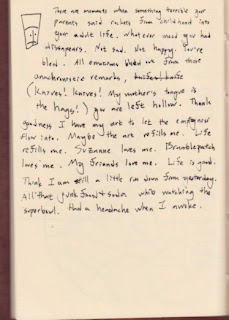 There are moments when something terrible your
parents said riches from childhood into
your adult life. Whatever mood you had
dissapears. Not sad. Not happy. You're
blank. All emotions from those
anachronistic remarks,
(Knives! Knives! My mother's tongue is
the hags!) you are left hollow. Thank
goodness I have my art to let the emptyness
flow into. Maybe the art refills me. Life
refills me. Suzanne loves me. Bramblepatch
loves me. My friends love me. Life is good.
Think I am still a little run down from yesterday.
All that junk food & soda while watching the
superbowl. Had a headache when I awoke.